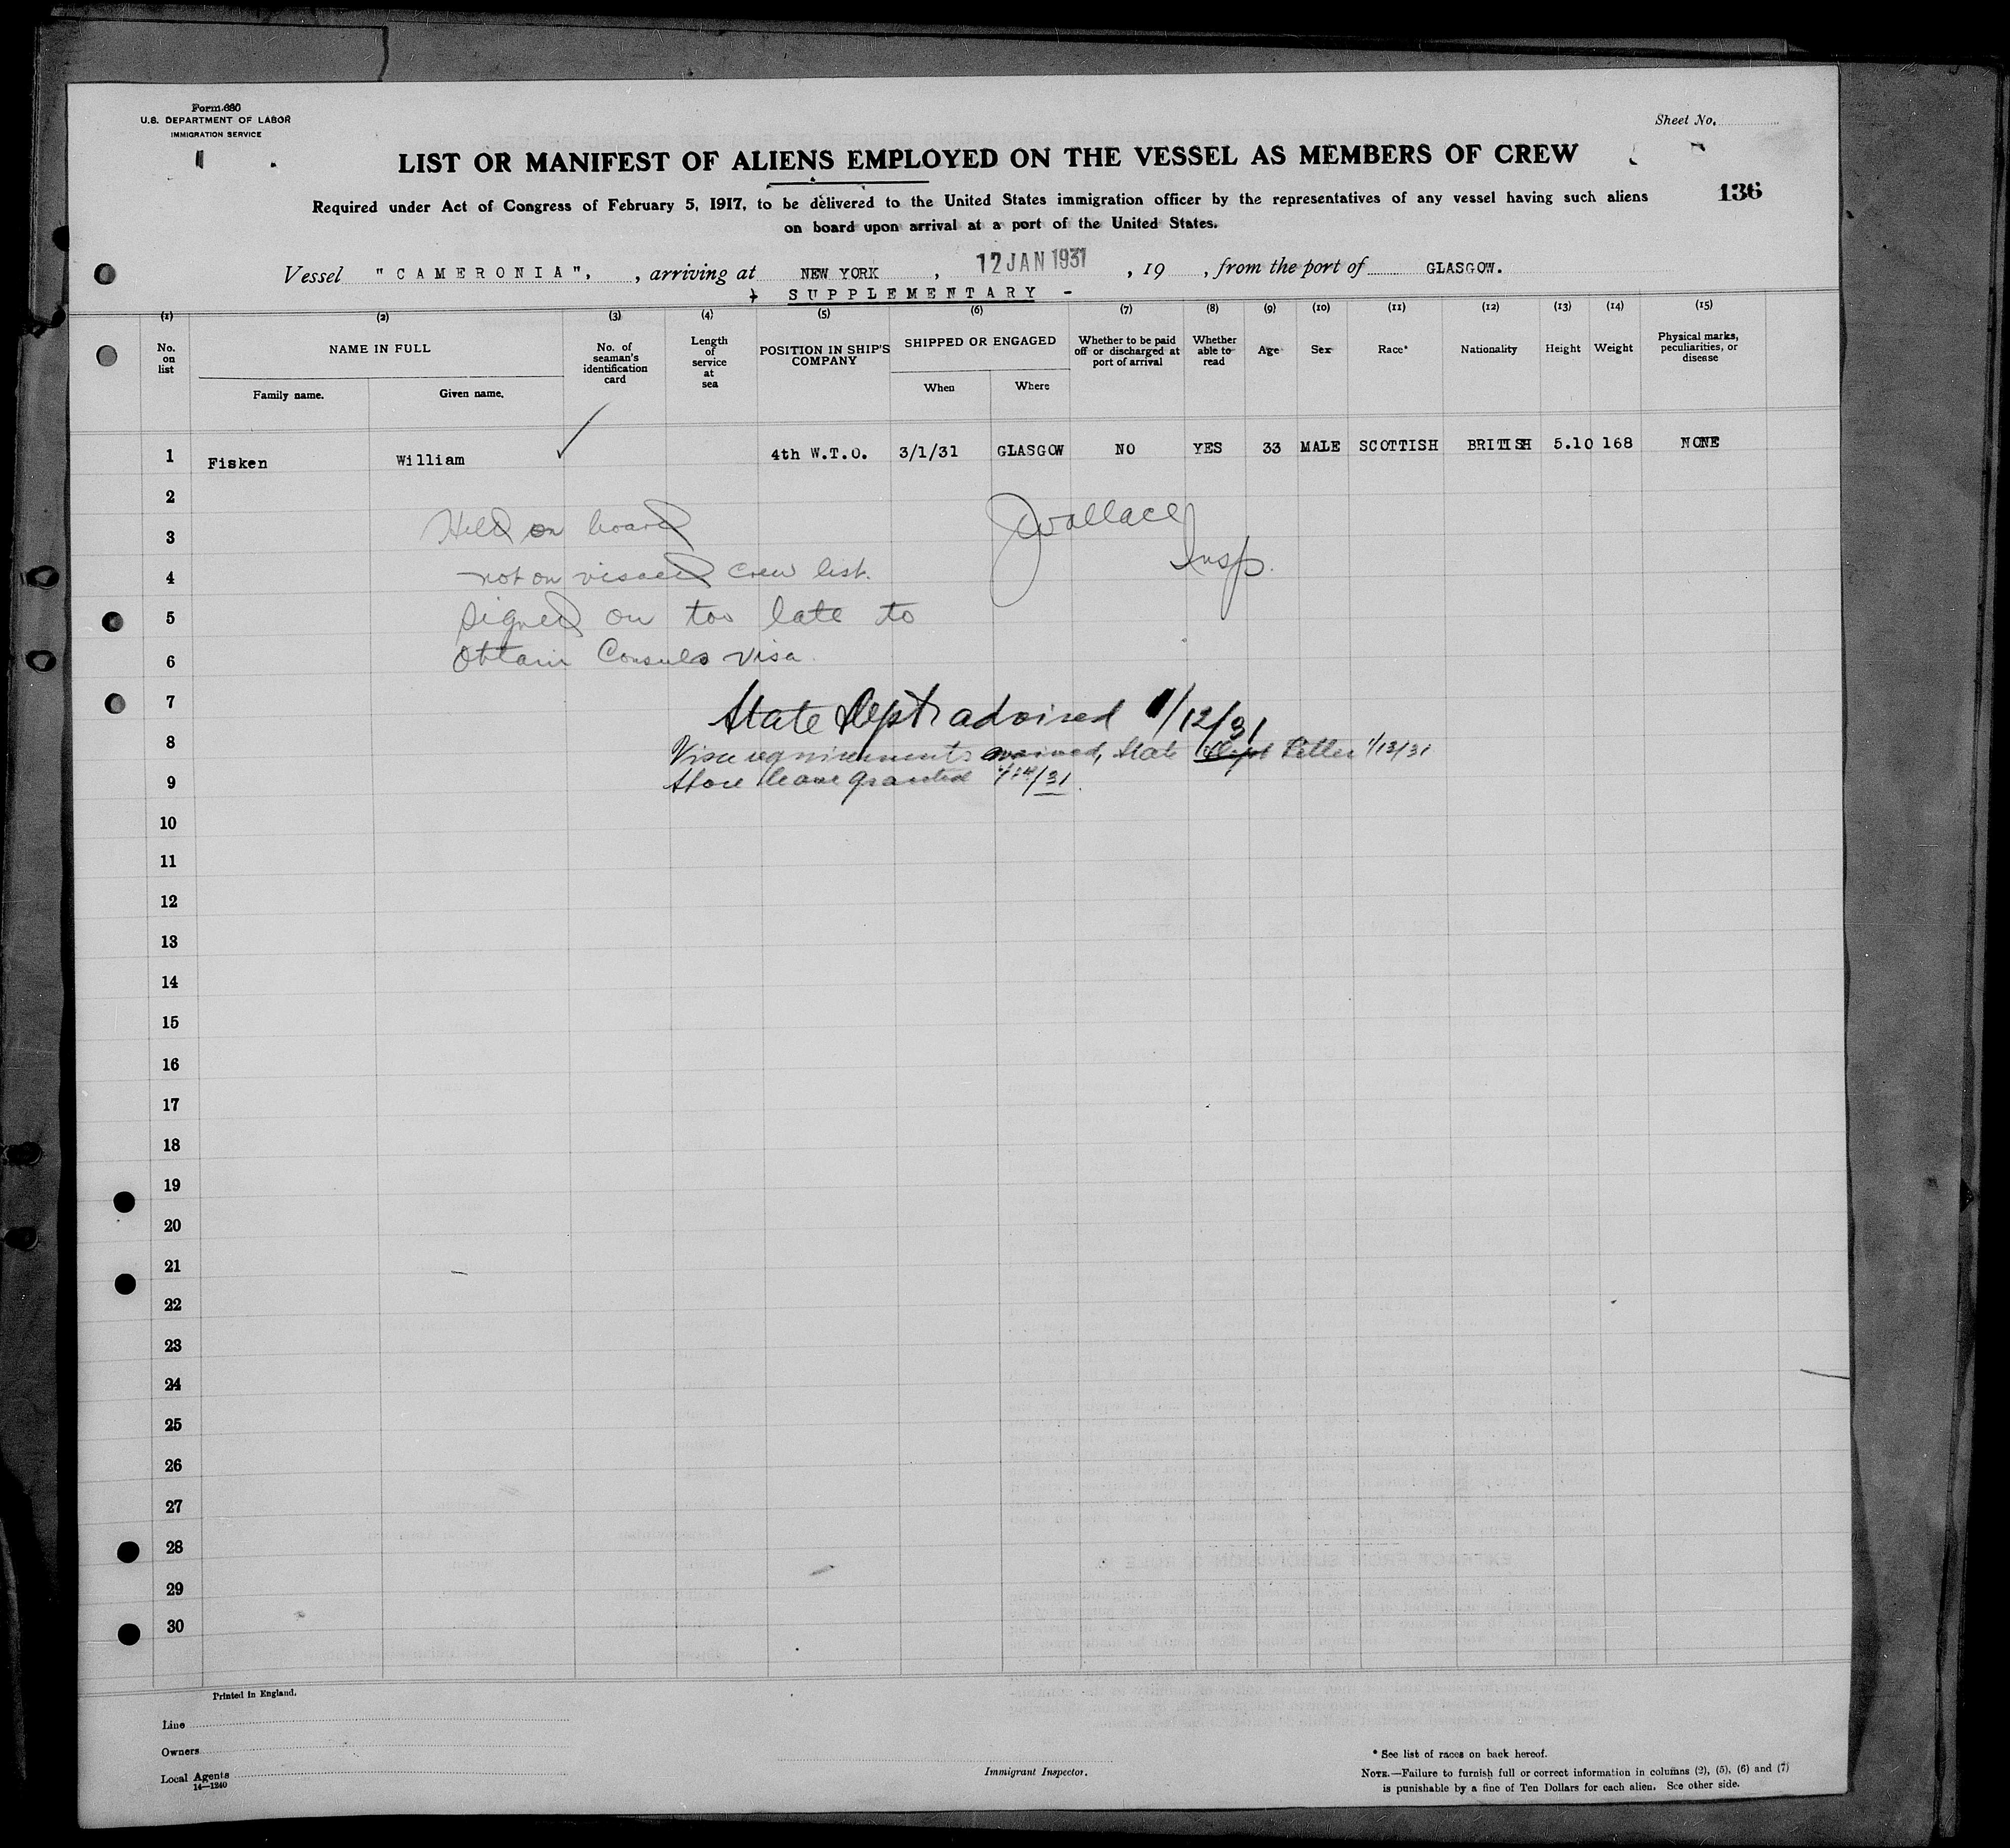 Form 680
U.S. DEPARTMENT OF LABOR
IMMIGRATION SERVICE
Sheet No.
LIST OR MANIFEST OF ALIENS EMPLOYED ON THE VESSEL AS MEMBERS OF CREW
136
Required under Act of Congress of February 5, 1917, to be delivered to the United States immigration officer by the representatives of any vessel having such aliens
on board upon arrival at a port of the United States.
Vessel "CAMERONIA", , arriving at NEW YORK , 12 JAN 1931 , 19 , from the port of GLASGOW.
SUPPLEMENTARY -
(1) (2) (3) (4) (5) (6) (7) (8) (9) (10) (11) (12) (13) (14) (15)
No. on list
NAME IN FULL
Family name. Given name.
No. of seaman's identification card
Length of service at sea
POSITION IN SHIP'S COMPANY
SHIPPED OR ENGAGED
When Where
Whether to be paid off or discharged at port of arrival
Whether able to read
Age
Sex
Race*
Nationality
Height
Weight
Physical marks, peculiarities, or disease
1 Fisken William 4th W.T.O. 3/1/31 GLASGOW NO YES 33 MALE SCOTTISH BRITISH 5.10 168 NONE
2
3 Held on board JWallace
4 not on visaed crew list. Insp.
5 Signed on too late to
6 Obtain Consuls visa.
7 State Dept advised 1/12/31
8 Visa requirements waived, State Dept Letter 1/13/31
9 Shore leave granted 1/14/31.
10
11
12
13
14
15
16
17
18
19
20
21
22
23
24
25
26
27
28
29
30
Printed in England.
Line
Owners
Local Agents
14—1240
Immigrant Inspector.
* See list of races on back hereof.
NOTE.—Failure to furnish full or correct information in columns (2), (5), (6) and (7)
is punishable by a fine of Ten Dollars for each alien. See other side.